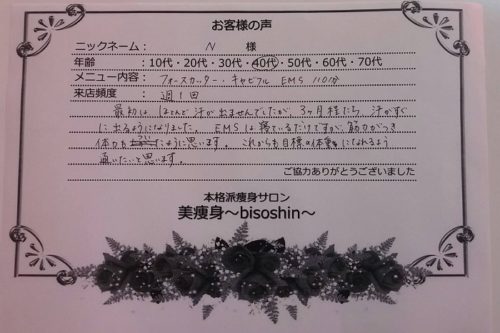 お客様の声
ニックネーム： N 様
年齢 ：10代・20代・30代・40代・50代・60代・70代
メニュー内容： フォースカッター・キャビフル EMS 110分
来店頻度 ： 週1回
最初は ほとんど汗が出ませんでしたが、3ヶ月経ったら 汗がすぐ
に出るようになりました。 EMSは寝ているだけですが、筋力がつき
体力も ついたように思います。 これからも目標の体重になれるよう
通いたいと思います。
ご協力ありがとうございました
本格派痩身サロン
美痩身～bisoshin～